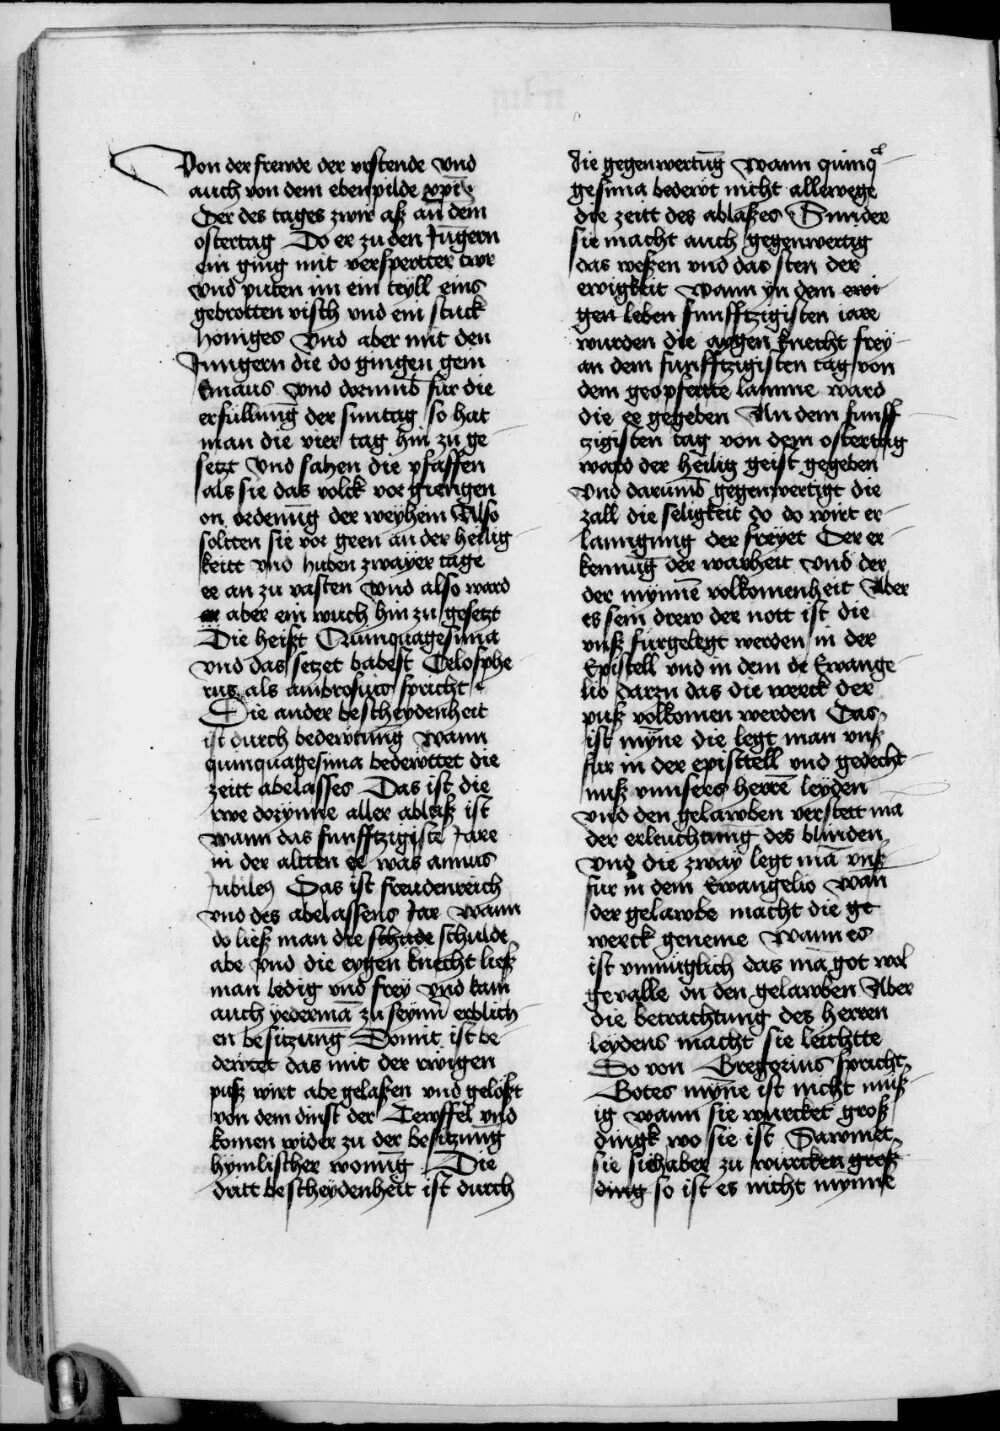 Von der frewde der vrstende vnd
auch von dem ebenpilde xp̄i
Der des tages zwir aß an dem
ostertag Do er zu den Jūngern
ein ging mit verspertter twr
vnd puten im ein teyll eins
gebrotten visch vnd ein stuck
honiges Vnd aber mit den
Jungern die do gingen gem
Emaus Vnd dorumb fur die
erfullung der suntag so hat
man die vier tag hin zu ge
setzt Vnd sahen die pfaffen
als sie das volck vor giengen
on ordenūg der weyhem Also
soltten sie vor geen an der heilig
keitt vnd huben zwayer tage
ee an zu vasten Vnd also ward
aber ein wuch hin zu gesetzt
Die heißt Quinquagesima
vnd das setzet babest Telosphe
rus als ambrosius spricht
Die ander bescheydenheit
ist durch bedewtung wann
quinquagesima bedewttet die
zeitt abelasses Das ist die
rwe dorynne aller ablaß ist
wann das funfftzigiste Jare
in der altten ee was annus
Jubileus Das ist freudenreich
vnd des abelassens Jar wann
do ließ man die schade schulde
abe vnd die eygen knecht ließ
man ledig vnd frey vnd kam
auch yedermā zu seynn erblich
en besitzung Domit ist be
dewtet das mit der ewigen
puß wirt abe gelaßen vnd gelößt
von dem dinst der Tewffel vnd
komen wider zu der besitzung
hymlischer wonūg Die
dritt bescheydenheit ist durch
die gegenwertūg wann quinq̄
gesima bedewt nicht allewege
die zeitt des ablaßes Sunder
sie macht auch gegenwertig
das weßen vnd das sten der
ewigkeit wann yn dem ewi
gen leben funfftzigisten iare
wurden die aygen knecht frey
an dem funfftzigisten tag von
dem geopfertte lamme ward
die ee gegeben An dem funff
zigisten tag von dem ostertag
ward der heilig geist gegeben
vnd darumb gegenwertigt die
zall die seligkeit do do wirt er
langung der freyet Der er
kennūg der warheit vnd der
der mynnē volkomenheit Aber
es sein drew der nott ist die
vnß furgelegt werden in der
Epistell vnd in dem de Ewange
lio Darzu das die werck der
puß volkomen werden Das
ist myne die legt man vnß
fur in der episttell vnd gedecht
nuß vnnsers herrē leyden
vnd den gelawben verstett ma
der erleuchtung des blinden
Vnd die zway legt mā vnß
fur in dem Ewangelio wan
der gelawbe macht die ge
werck geneme Wann es
ist vnmuglich das mā got wol
gevalle on den gelawben Aber
die betrachtung des herren
leydens macht sie leichtte
Do von Gregorius spricht
Gotes myne ist nicht muß
ig wann sie wurcket groß
dingk wo sie ist Sawmet
sie sich aber zu wurcken groß
ding so ist es nicht mynne